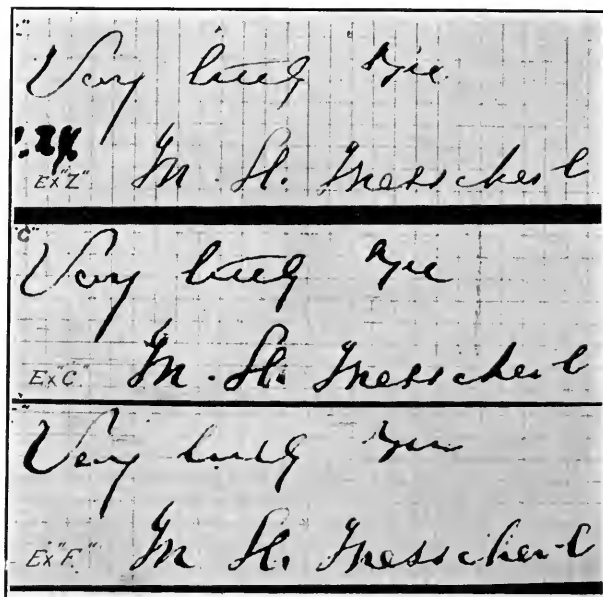 Very truly
Ex "Z"
M. H. Messchert
Very truly
Ex "C"
M. H. Messchert
Very truly
Ex "F."
M H. Messchert